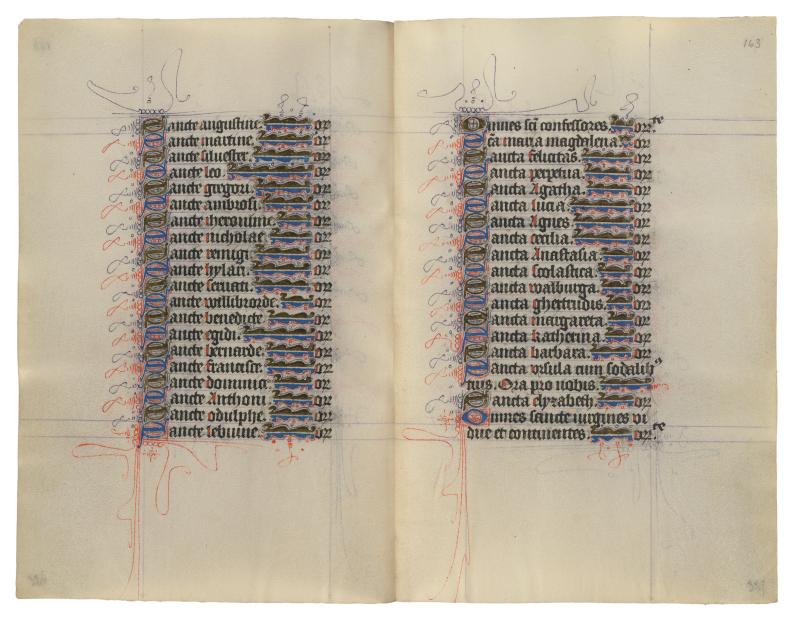 Sancte augustine. or
Sancte martine. or
Sancte silvester. or
Sancte leo. or
Sancte gregori. or
Sancte ambrosi. or
Sancte iheronime. or
Sancte nicholae. or
Sancte remigi. or
Sancte hylari. or
Sancte servati. or
Sancte willibrorde. or
Sancte benedicte. or
Sancte egidi. or
Sancte bernarde. or
Sancte francisce. or
Sancte dominice. or
Sancte Anthoni. or
Sancte odulphe. or
Sancte lebuine. or
163
Omnes sci confessores. orte
Sca maria magdalena. or
Sancta felicitas. or
Sancta perpetua. or
Sancta Agatha. or
Sancta lucia. or
Sancta Agnes. or
Sancta cecilia. or
Sancta Anastasia. or
Sancta scolastica. or
Sancta walburga. or
Sancta ghertrudis. or
Sancta margareta. or
Sancta katherina. or
Sancta barbara. or
Sancta ursula cum sodalibs
tuis. Ora pro nobis.
Sancta elyzabeth. or
Omnes sancte virgines vi
due et continentes. orte